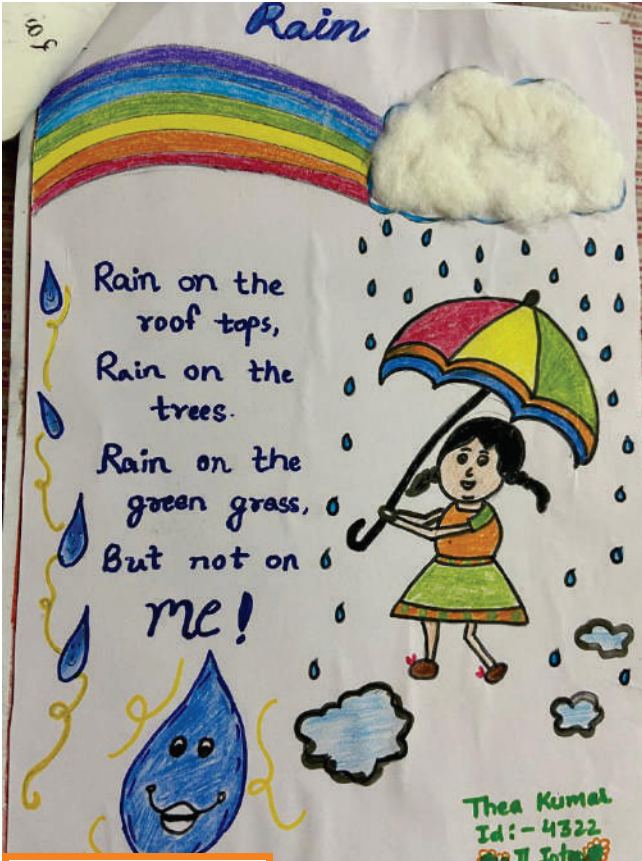 Rain
Rain on the
roof tops,
Rain on the
trees.
Rain on the
green grass,
But not on
me!
Thea Kumar
Id:- 4322
II